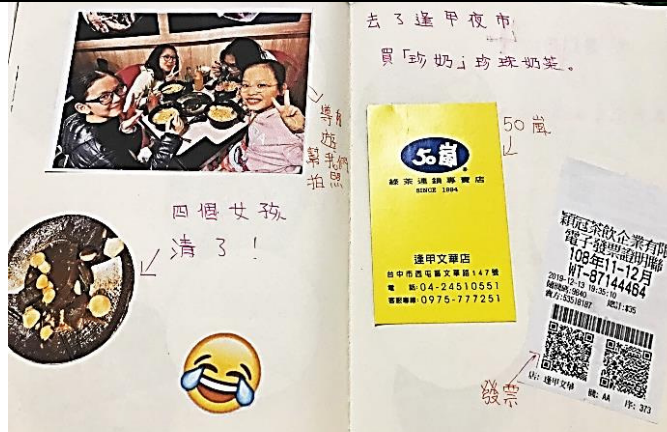 導
遊
幫我們
拍照
四個女孩
清了！
去了逢甲夜市
買「珍奶」珍珠奶茶。
50嵐
50嵐
綠茶連鎖專賣店
SINCE 1994
逢甲文華店
台中市西屯區文華路147號
電 話:04-24510551
客服專線:0975-777251
穎冠茶飲企業有限
電子發票證明聯
108年11-12月
WT-87144464
2019-12-13 19:35:10
隨機碼:9640 總計:$35
賣方:53518187
店: 逢甲文華 機: AA 序: 373
發票